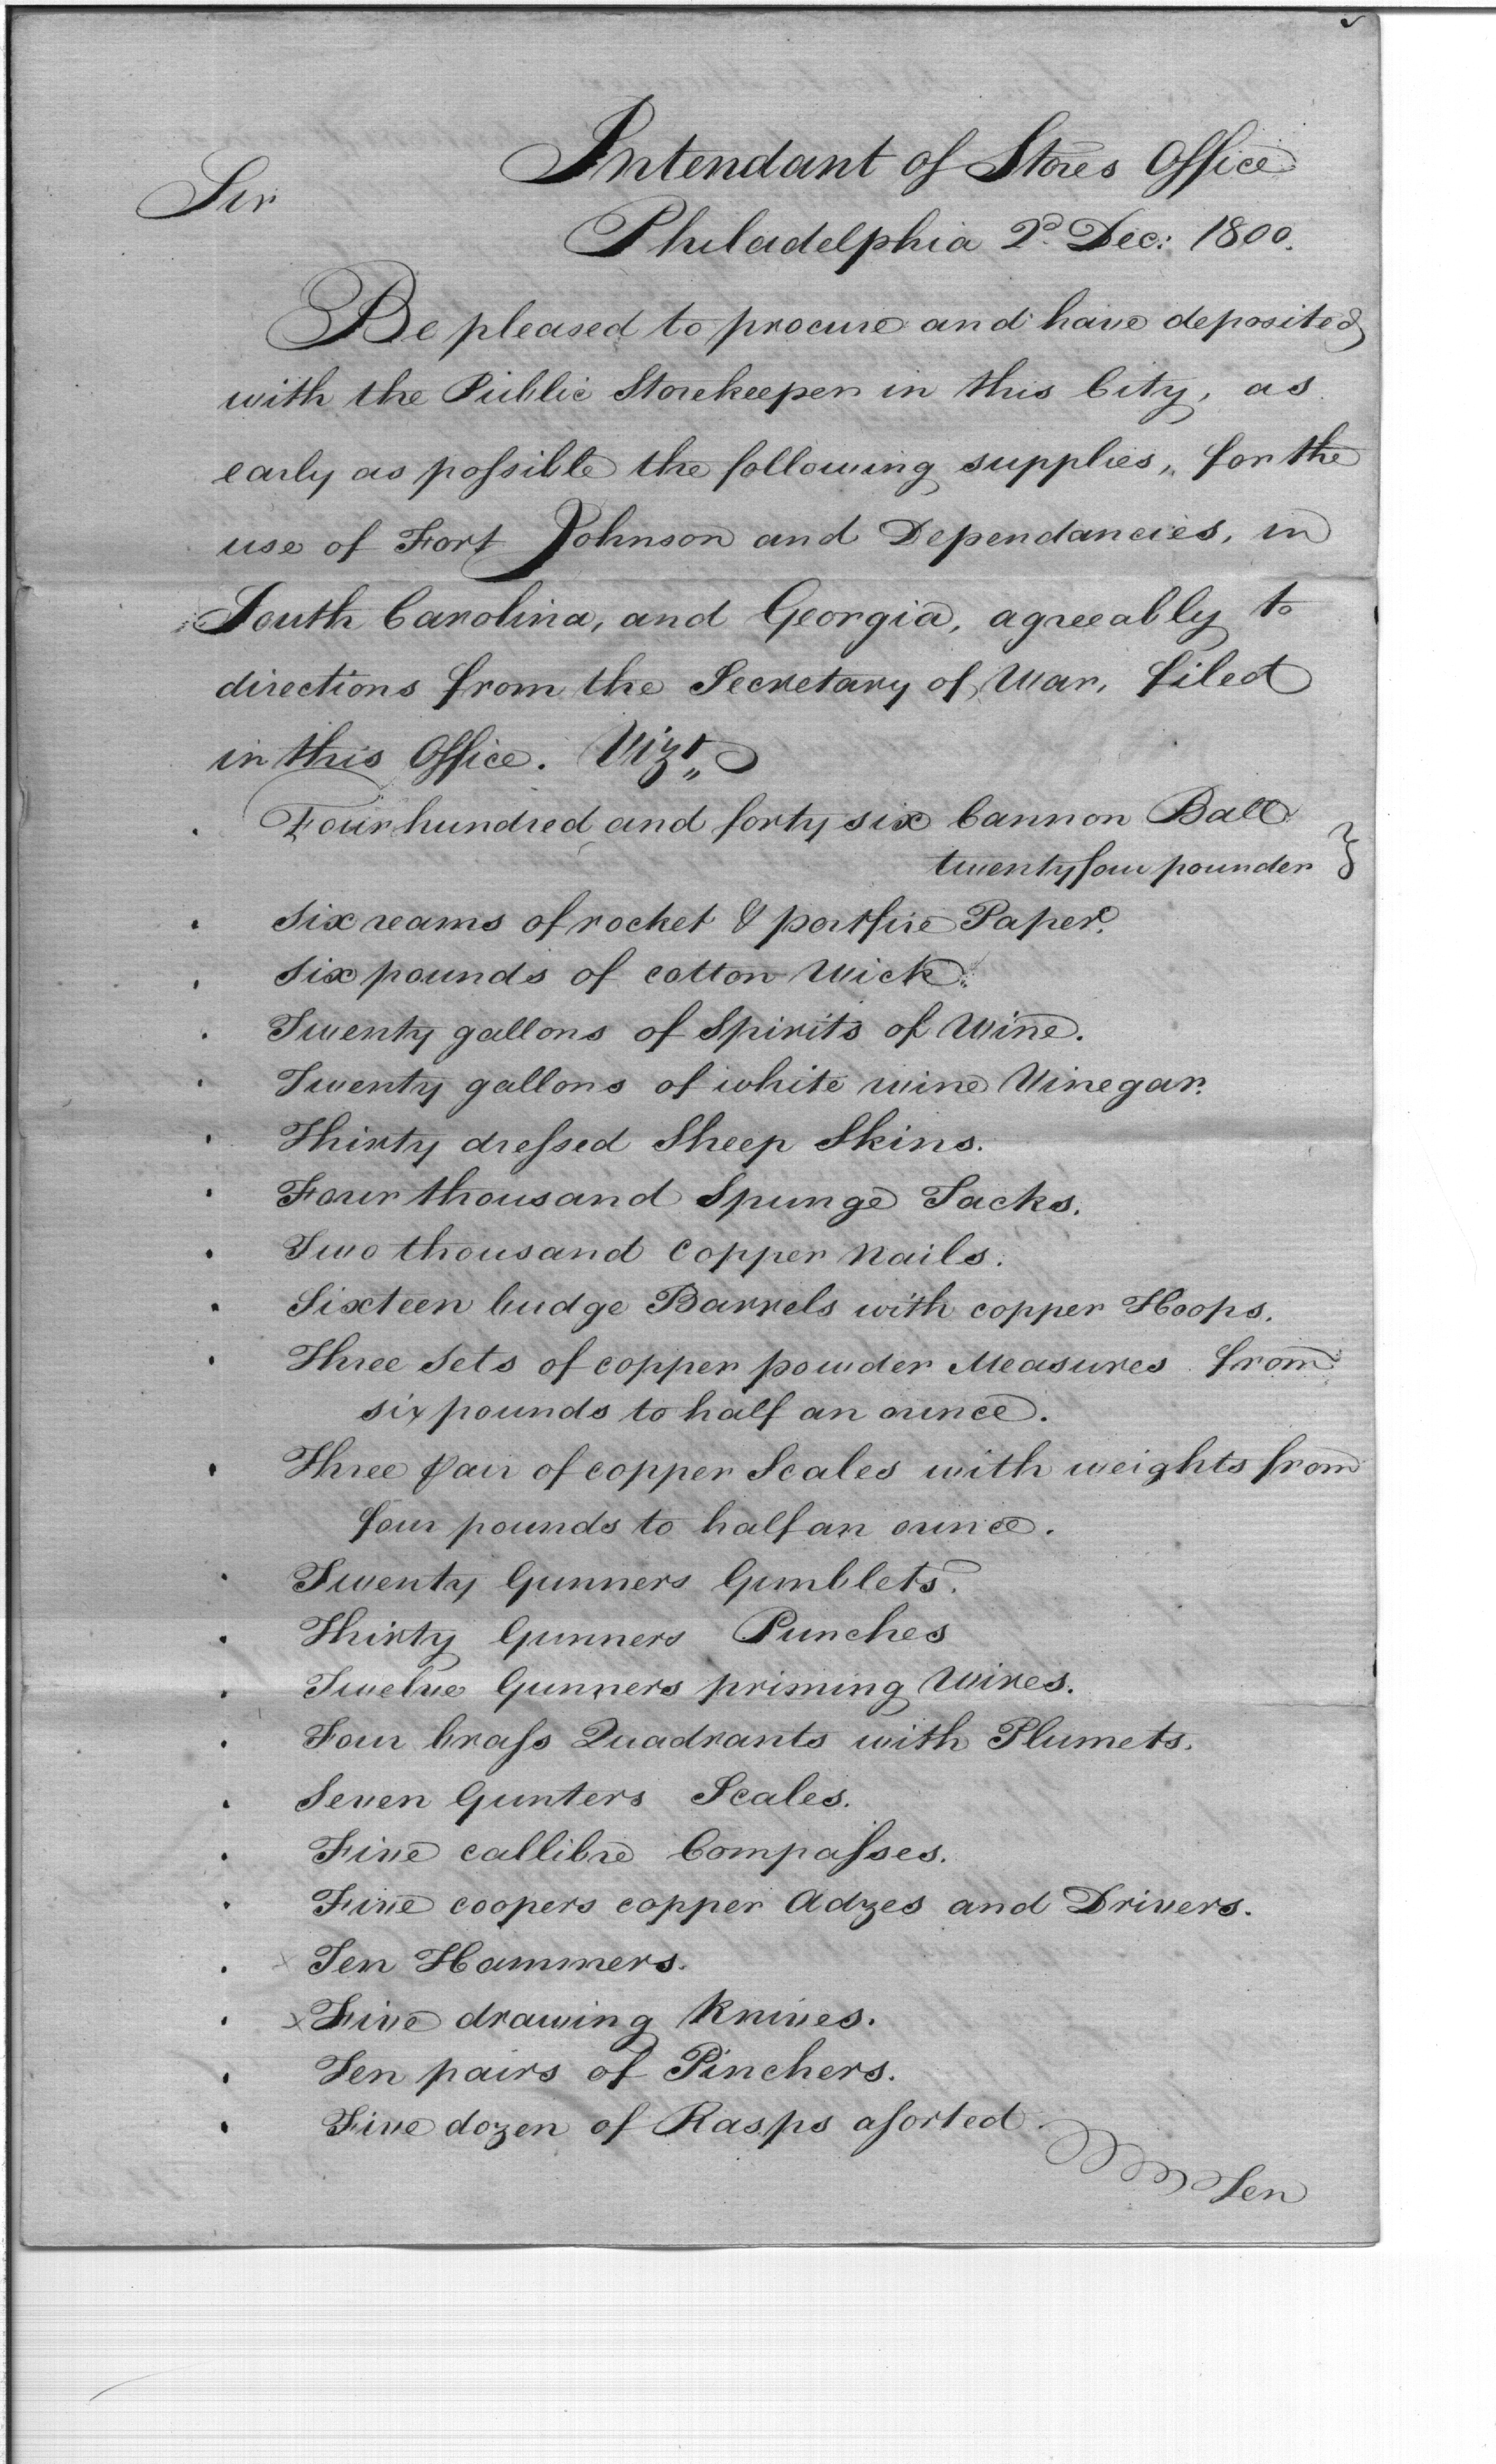 Intendant of Stores Office
Sir
Philadelphia 2d. Dec: 1800.
Be pleased to procure and have deposited
with the Public Storekeeper in this City, as
early as possible the following supplies, for the
use of Fort Johnson and Dependancies, in
South Carolina, and Georgia, agreeably to
directions from the Secretary of War, filed
in this Office. Vizt
Four hundred and forty six Cannon Ball
twenty four pounder }
Six reams of rocket & portfire Paper.
Six pounds of cotton Wick.
Twenty gallons of Spirits of Wine.
Twenty gallons of white wine Vinegar.
Thirty dressed Sheep Skins.
Four thousand Spunge Tacks.
Two thousand Copper Nails.
Sixteen budge Barrels with copper Hoops.
Three Sets of copper powder Measures from
six pounds to half an ounce.
Three pair of copper Scales with weights from
four pounds to half an ounce.
Twenty Gunners Gimblets.
Thirty Gunners Punches
Twelve Gunners priming Wires.
Four brass Quadrants with Plumets.
Seven Gunters Scales.
Five callibre Compasses.
Five coopers copper Adzes and Drivers.
x Ten Hammers.
x Five drawing Knives.
Ten pairs of Pinchers.
Five dozen of Rasps asorted
Ten